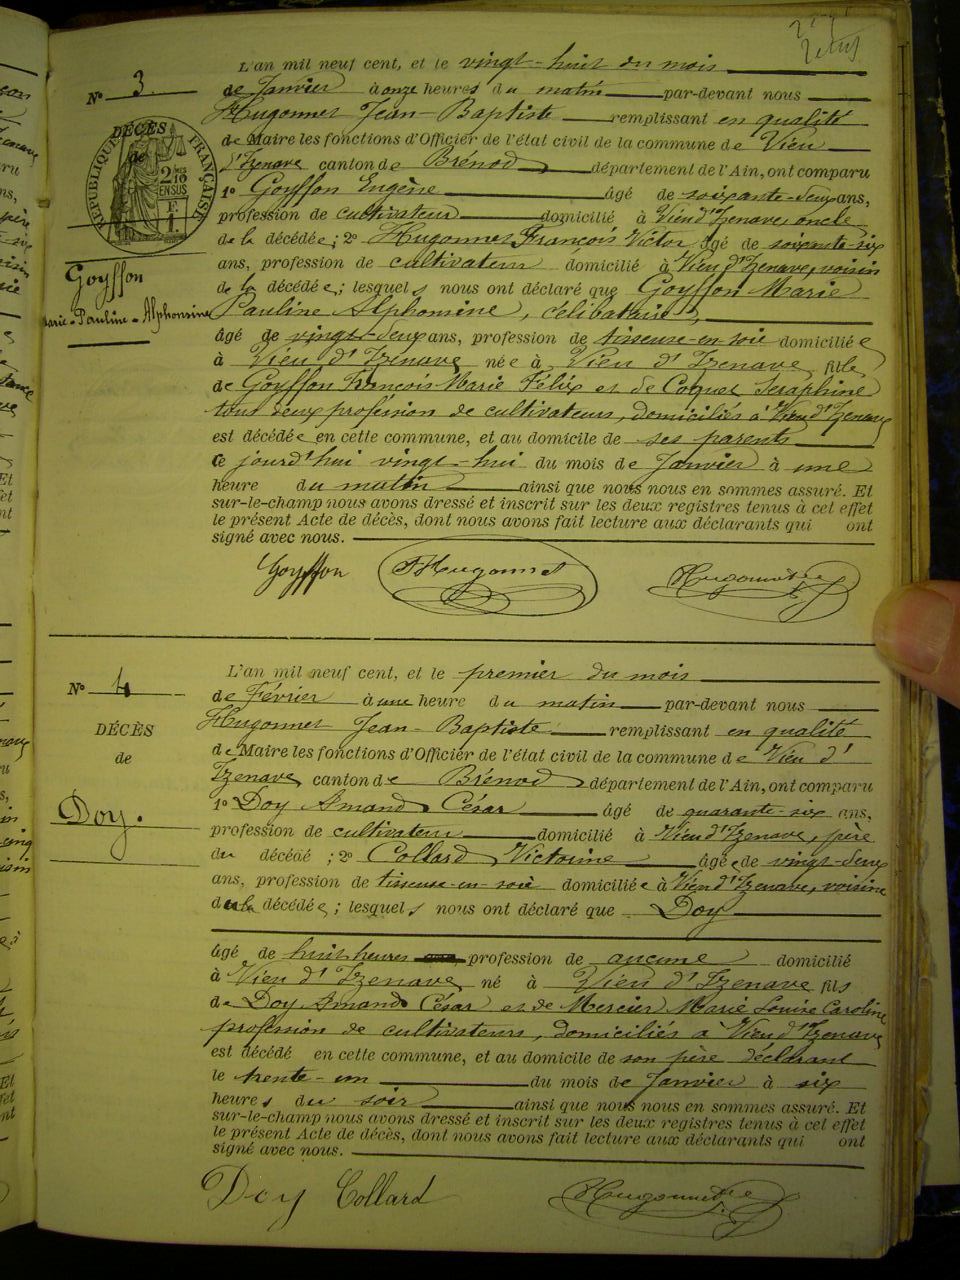 N° 3
DÉCÈS
de
RÉPUBLIQUE FRANÇAISE
2 10
EN SUS
Goyffon
Marie-Pauline-Alphonsine
L'an mil neuf cent, et le vingt-huit du mois
de Janvier à onze heures du matin par-devant nous
Hugonnet Jean-Baptiste remplissant en qualité
de Maire les fonctions d'Officier de l'état civil de la commune de Vieu
d'Izenave canton de Brénod département de l'Ain, ont comparu
1° Goyffon Eugène âgé de soixante-deux ans,
profession de cultivateur domicilié à Vieu d'Izenave, oncle
de la décédée; 2° Hugonnet François Victor âgé de soixante-six
ans, profession de cultivateur domicilié à Vieu d'Izenave, voisin
de la décédée; lesquels nous ont déclaré que Goyffon Marie
Pauline Alphonsine, célibataire,
âgé de vingt-deux ans, profession de tisseuse-en-soie domiciliée
à Vieu d'Izenave née à Vieu d'Izenave fille
de Goyffon François Marie Félix et de Coquet Séraphine
tous deux profession de cultivateurs, domiciliés à Vieu d'Izenave
est décédée en cette commune, et au domicile de ses parents
ce jourd'hui vingt-hui du mois de Janvier à une
heure du matin ainsi que nous nous en sommes assuré. Et
sur-le-champ nous avons dressé et inscrit sur les deux registres tenus à cet effet
le présent Acte de décès, dont nous avons fait lecture aux déclarants qui ont
signé avec nous.
Goyffon Hugonnet Hugonnet
N° 4
DÉCÈS
de
Doy.
L'an mil neuf cent, et le premier du mois
de Février à une heure du matin par-devant nous
Hugonnet Jean-Baptiste remplissant en qualité
de Maire les fonctions d'Officier de l'état civil de la commune de Vieu d'
Izenave canton de Brénod département de l'Ain, ont comparu
1° Doy Amand César âgé de quarante-six ans,
profession de cultivateur domicilié à Vieu d'Izenave, père
du décédé; 2° Collard Victorine âgée de vingt-deux
ans, profession de tisseuse-en-soie domiciliée à Vieu d'Izenave, voisine
de la décédée; lesquels nous ont déclaré que Doy
âgé de huit heures profession de aucune domicilié
à Vieu d'Izenave né à Vieu d'Izenave fils
de Doy Amand César et de Mercier Marie Louise Caroline
profession de cultivateurs, domiciliés à Vieu d'Izenave
est décédé en cette commune, et au domicile de son père déclarant
le trente-un du mois de Janvier à six
heures du soir ainsi que nous nous en sommes assuré. Et
sur-le-champ nous avons dressé et inscrit sur les deux registres tenus à cet effet
le présent Acte de décès, dont nous avons fait lecture aux déclarants qui ont
signé avec nous.
Doy Collard Hugonnet